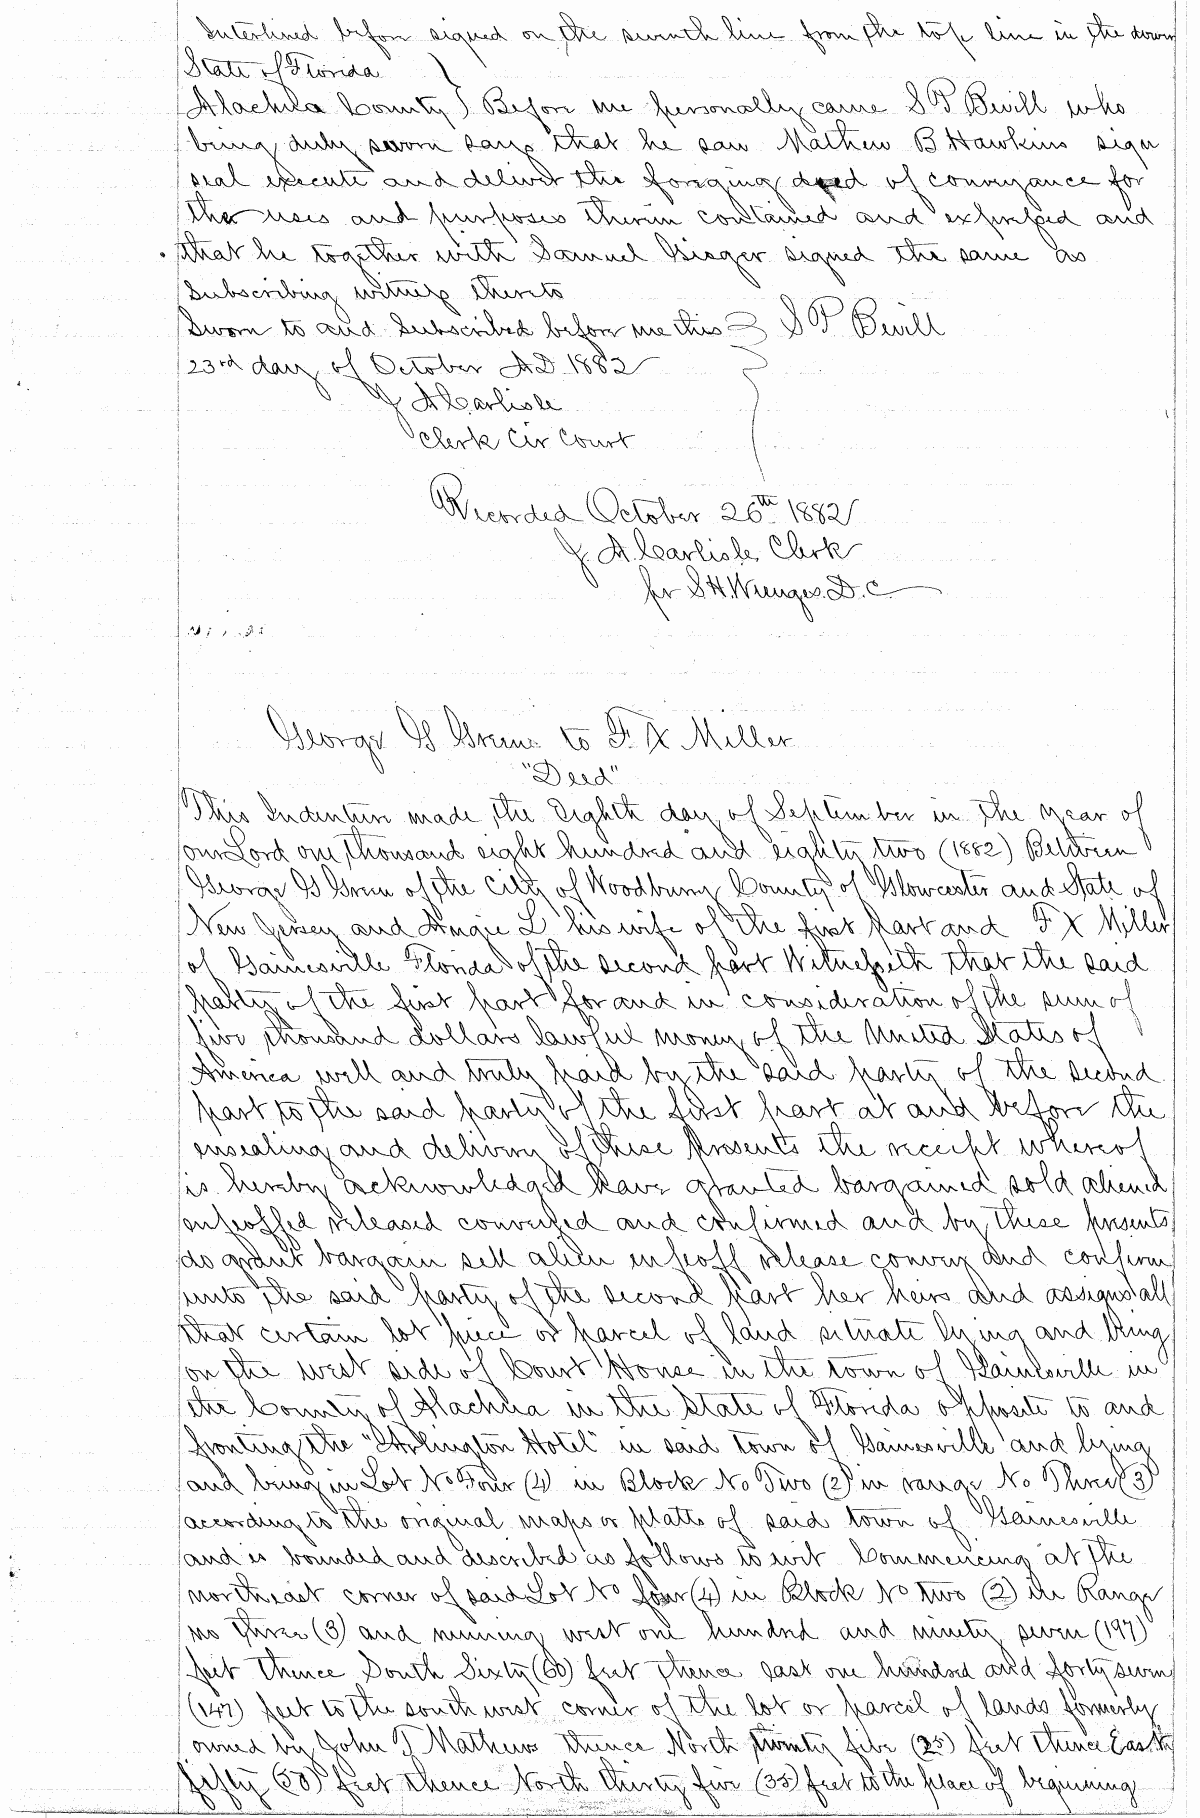 Interlined before signed on the seventh line from the top line in the down
State of Florida
Alachua County } Before me personally came S T Bevill who
being duly sworn says that he saw Mathew B Hawkins sign
seal execute and deliver the foreging deed of conveyance for
the uses and purposes therein contained and expressed and
that he together with Samuel Geiger signed the same as
Subscribing witness thereto
Sworn to and Subscribed before me this } S T Bevill
23rd day of October A D 1882
J A Carlisle
Clerk Cir Court
Recorded October 26th 1882
J. A. Carlisle Clerk
pr S H. Wienges. D. C.
George G Green to F. X Miller
"Deed"
This Indenture made the Eighth day of September in the year of
our Lord one thousand eight hundred and eighty two (1882) Between
George G Green of the City of Woodbury County of Glowcester and State of
New Jersey and Angie L his wife of the first part and F X Miller
of Gainesville Florida of the second part Witnesseth that the said
party of the first part for and in consideration of the sum of
five thousand dollars lawful money of the United States of
America well and truly paid by the said party of the second
part to the said party of the first part at and before the
ensealing and delivery of these presents the receipt whereof
is hereby acknowledged have granted bargained sold aliened
enfeoffed released conveyed and confirmed and by these presents
do grant bargain sell alien enfeoff release convey and confirm
unto the said party of the second part her heirs and assigns all
that certain lot piece or parcel of land situate lying and being
on the west side of Court House in the town of Gainesville in
the County of Alachua in the State of Florida opposite to and
fronting the "Arlington Hotel" in said town of Gainesville and lying
and being in Lot No Four (4) in Block No Two (2) in range No Three (3)
according to the original maps or platts of said town of Gainesville
and is bounded and described as follows to wit Commencing at the
northeast corner of said Lot No four (4) in Block No two (2) in Range
no three (3) and running west one hundred and ninety seven (197)
feet thence South Sixty (60) feet thence east one hundred and forty seven
(147) feet to the southwest corner of the lot or parcel of lands formerly
owned by John T Mathews thence North twenty five (25) feet thence East
fifty (50) feet thence North thirty five (35) feet to the place of beginning